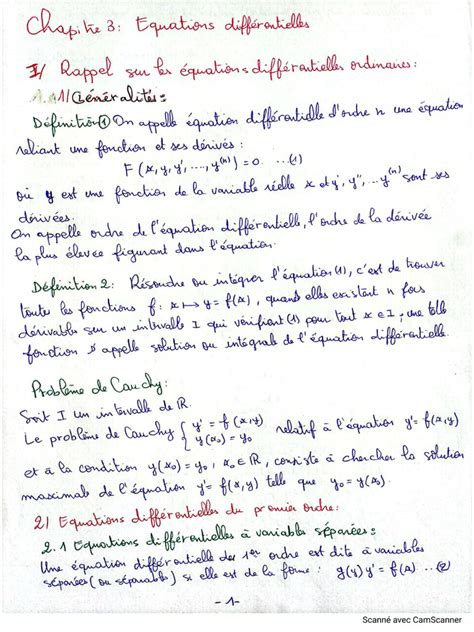 Chapitre 3: Equations différentielles
I/ Rappel sur les équations différentielles ordinaires:
1/ Généralités:
Définition① On appelle équation différentielle d'ordre n une équation
reliant une fonction et ses dérivées:
F(x, y, y', ...., y⁽ⁿ⁾) = 0. ...(1)
où y est une fonction de la variable réelle x et y', y'', ... y⁽ⁿ⁾ sont ses
dérivées.
On appelle ordre de l'équation différentielle, l'ordre de la dérivée
la plus élevée figurant dans l'équation.
Définition 2: Résoudre ou intégrer l'équation (1), c'est de trouver
toute les fonctions f: x ↦ y = f(x), quand elles existent n fois
dérivable sur un intervalle I qui vérifiant (1) pour tout x ∈ I, une telle
fonction s'appelle solution ou intégrale de l'équation différentielle.
Problème de Cauchy:
Soit I un intervalle de ℝ.
Le problème de Cauchy { y' = f(x,y) relatif à l'équation y' = f(x,y)
y(x₀) = y₀
et à la condition y(x₀) = y₀, x₀ ∈ ℝ, consiste à chercher la solution
maximale de l'équation y' = f(x,y) telle que y₀ = y(x₀).
2/ Equations différentielles du premier ordre:
2.1 Equations différentielles à variables séparées:
Une équation différentielle du 1er ordre est dite à variables
séparées (ou séparables) si elle est de la forme: g(y) y' = f(x) ... (2)
-1-
Scanné avec CamScanner